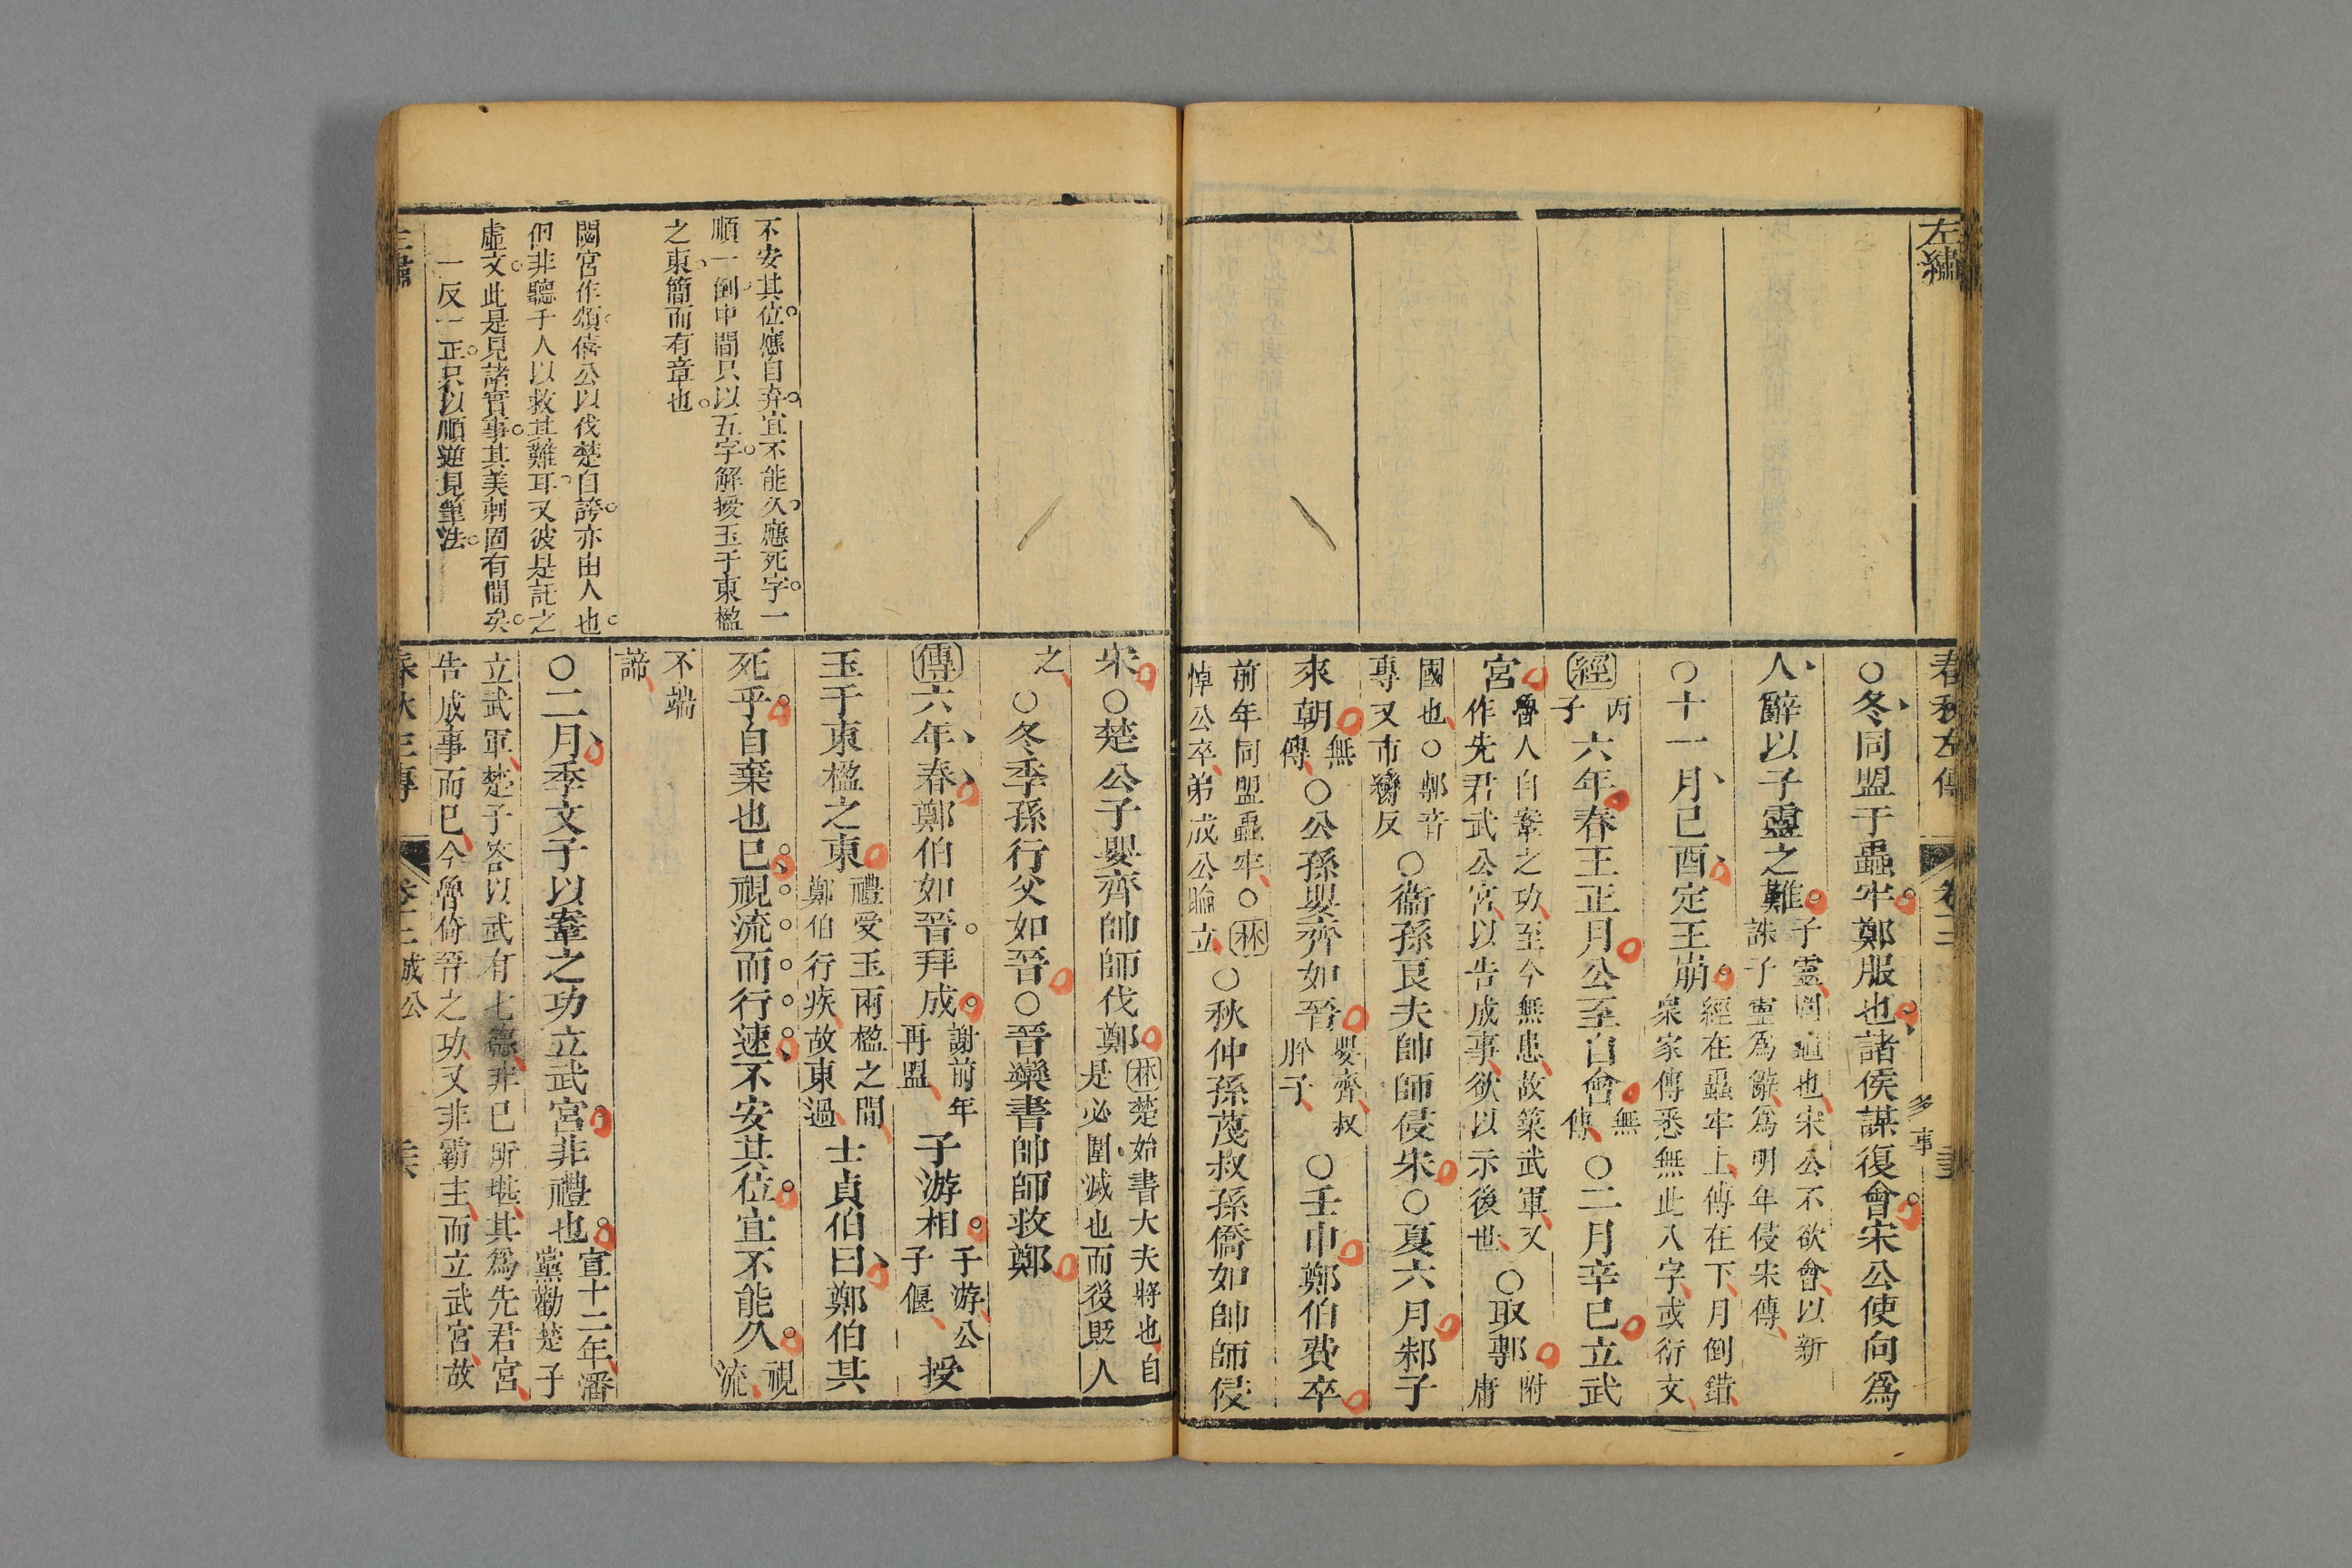 左繡
春秋左傳
卷十二
多事
○冬同盟于蟲牢鄭服也諸侯謀復會宋公使向爲
人辭以子靈之難子靈圍龜也宋公不欲會以新
誅子靈爲辭爲明年侵宋傳
○十一月己酉定王崩經在蟲牢上傳在下月倒錯
衆家傳悉無此八字或衍文
經丙子六年春王正月公至自會無傳○二月辛巳立武
宮魯人自鞌之功至今無患故築武軍又
作先君武公宮以告成事欲以示後世○取鄟附庸
國也○鄟音
專又市臠反○衞孫良夫帥師侵宋○夏六月邾子
來朝無傳○公孫嬰齊如晉嬰齊叔肸子○壬申鄭伯費卒
前年同盟蟲牢○林
悼公卒弟成公睔立○秋仲孫蔑叔孫僑如帥師侵
宋○楚公子嬰齊帥師伐鄭林楚始書大夫將也自
是必圍滅也而後貶人
之○冬季孫行父如晉○晉欒書帥師救鄭
傳六年春鄭伯如晉拜成謝前年再盟子游相子游公子偃授
玉于東楹之東禮受玉兩楹之間
鄭伯行疾故東過士貞伯曰鄭伯其
死乎自棄也已視流而行速不安其位宜不能久視流
不端
諦
○二月季文子以鞌之功立武宮非禮也宣十二年潘
黨勸楚子
立武軍楚子答以武有七德非己所堪其爲先君宮
告成事而已今魯倚晉之功又非霸主而立武宮故
不安其位應自弃宜不能久應死字一
順一倒中間只以五字解授玉于東楹
之東簡而有章也
閟宮作頌僖公以伐楚自誇亦由人也
但非聽于人以救其難耳又彼是託之
虛文此是見諸實事其美刺固有間矣
一反一正只以順逆見筆法
成公